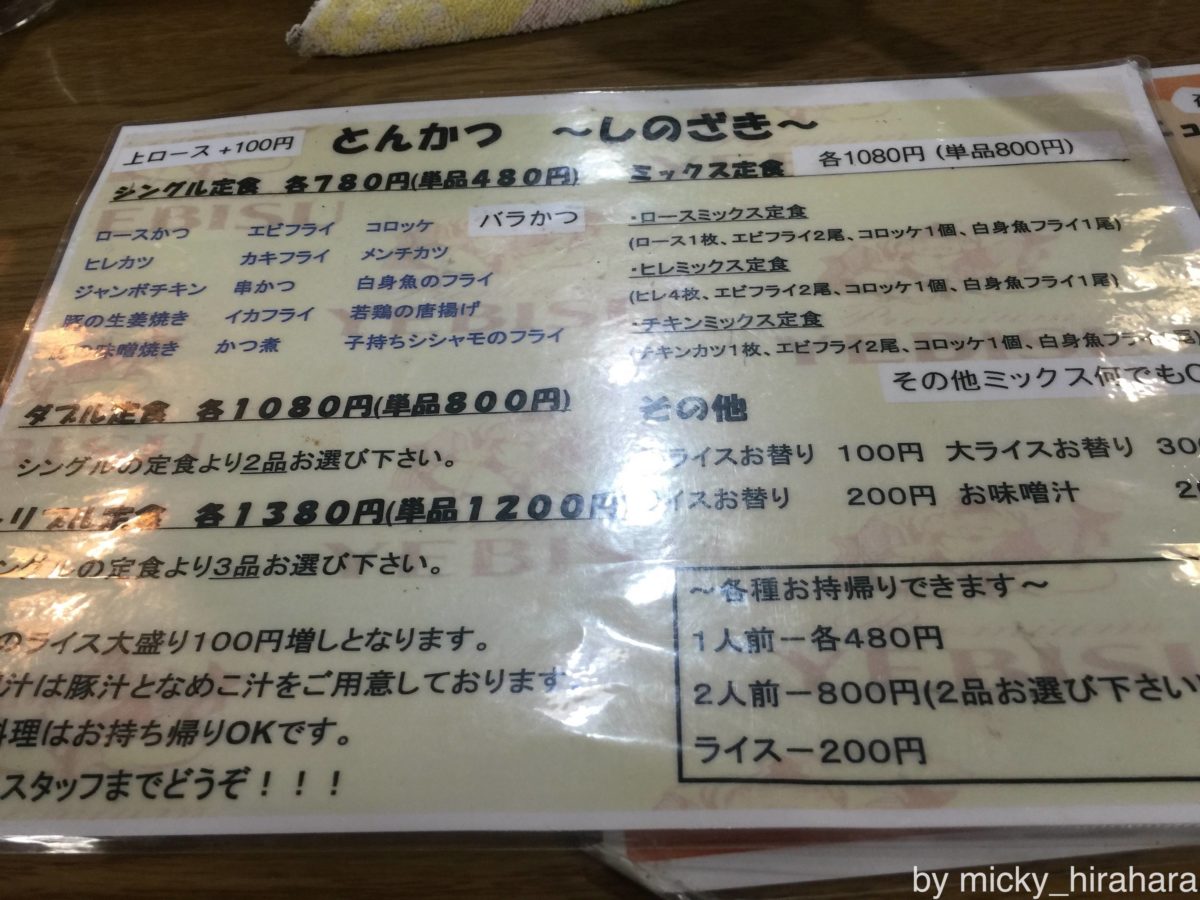 とんかつ ～しのざき～
上ロース +100円
シングル定食 各780円(単品480円)
ロースかつ エビフライ コロッケ バラかつ
ヒレカツ カキフライ メンチカツ
ジャンボチキン 串かつ 白身魚のフライ
豚の生姜焼き イカフライ 若鶏の唐揚げ
味噌焼き かつ煮 子持ちシシャモのフライ
ダブル定食 各1080円(単品800円)
シングルの定食より2品お選び下さい。
リプル定食 各1380円(単品1200円)
ングルの定食より3品お選び下さい。
のライス大盛り100円増しとなります。
汁は豚汁となめこ汁をご用意しております。
理はお持ち帰りOKです。
スタッフまでどうぞ！！！
ミックス定食 各1080円 (単品800円)
・ロースミックス定食
(ロース1枚、エビフライ2尾、コロッケ1個、白身魚フライ1尾)
・ヒレミックス定食
(ヒレ4枚、エビフライ2尾、コロッケ1個、白身魚フライ1尾)
・チキンミックス定食
(チキンカツ1枚、エビフライ2尾、コロッケ1個、白身魚フライ1尾)
その他ミックス何でもO
その他
ライスお替り 100円 大ライスお替り 300
イスお替り 200円 お味噌汁
～各種お持帰りできます～
1人前－各480円
2人前－800円(2品お選び下さい)
ライス－200円
YEBISU
by micky_hirahara